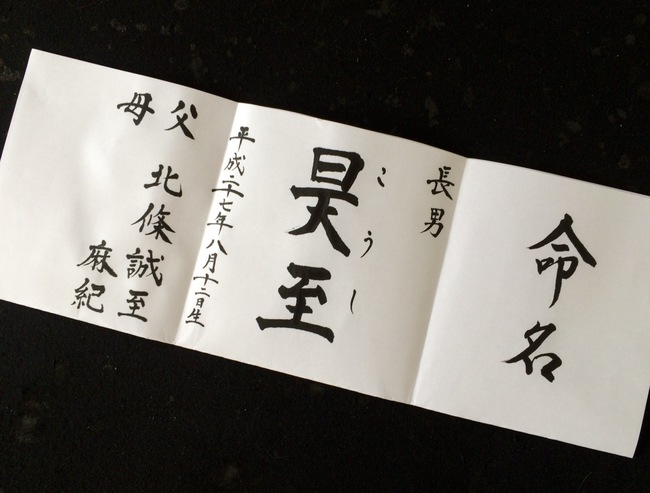 命名
長男
昊至
こうし
平成二十七年八月十二日生
父 北條誠至
母 麻紀